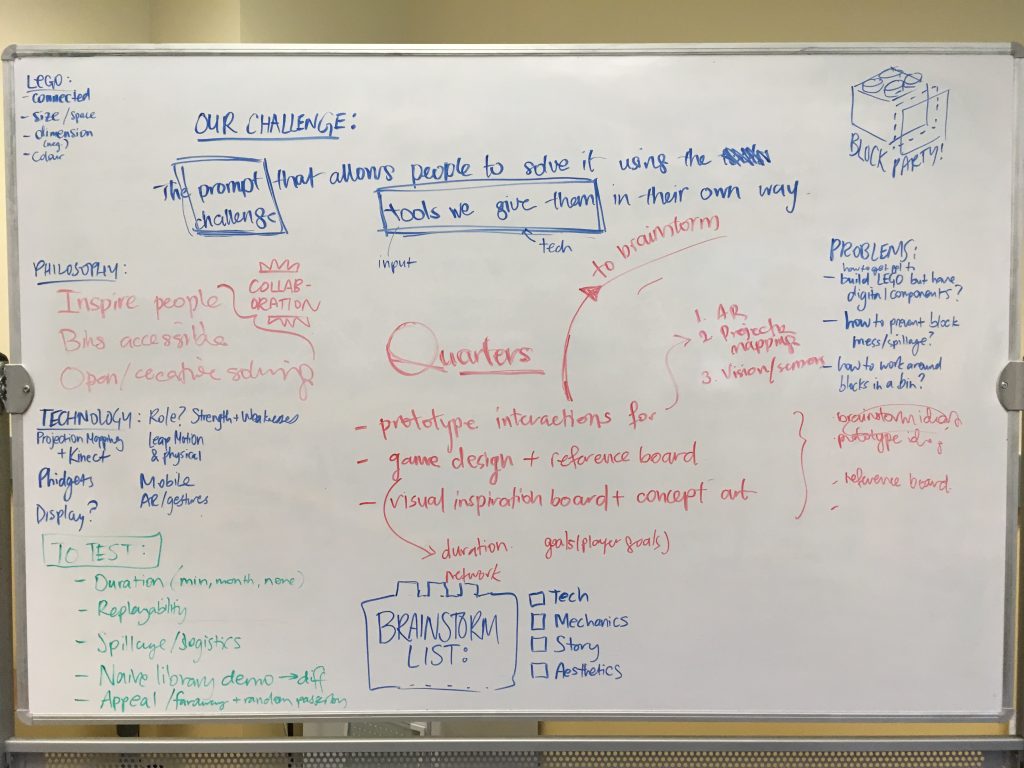 LEGO:
- connected
- size/space
- dimension
(neg.)
- Colour
OUR CHALLENGE:
The prompt that allows people to solve it using the
challenge
tools we give them in their own way
input
tech
BLOCK PARTY!
PHILOSOPHY:
Inspire people
Bins accessible
Open/creative solving
COLLAB-
ORATION
to brainstorm
Quarters
1. AR
2 Project
mapping
3. Vision/sensors
- prototype interactions for
- game design + reference board
- visual inspiration board + concept art
duration
network
goals (player goals)
PROBLEMS:
how to get ppl to
- build LEGO but have
digital components?
- how to prevent block
mess/spillage?
- how to work around
blocks in a bin?
brainstorm ideas
prototype
- reference board
-
TECHNOLOGY: Role? Strength + Weaknesses
Projection Mapping
+ Kinect
Leap Motion
& physical
Phidgets
Mobile
AR/gestures
Display?
TO TEST:
- Duration (min, month, none)
- Replayability
- Spillage/logistics
- Naive library demo → diff
- Appeal / faraway + random passerby
BRAINSTORM
LIST:
Tech
Mechanics
Story
Aesthetics